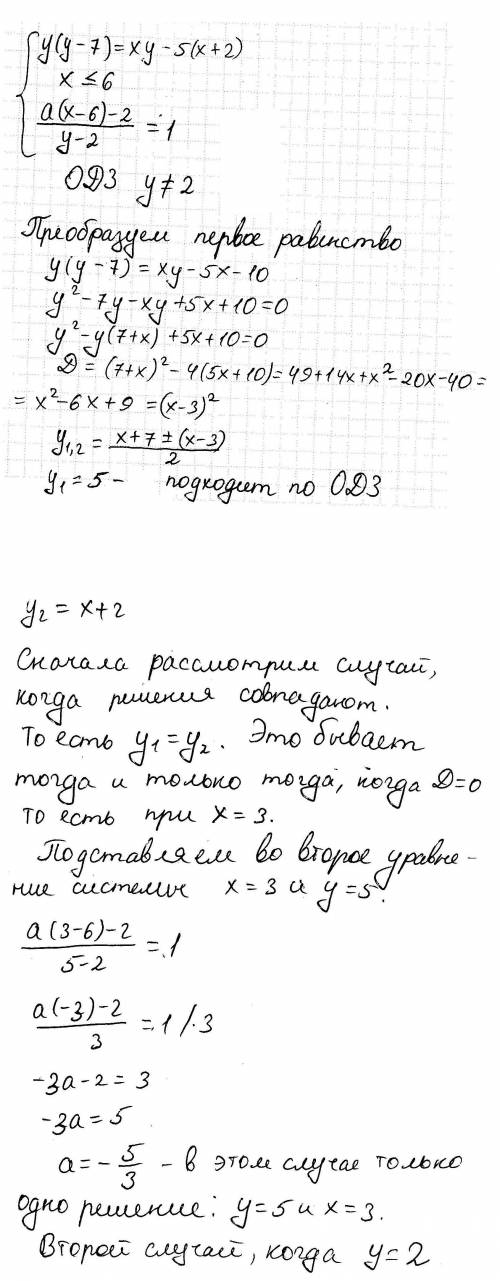 y(y-7)=xy-5(x+2)
x ≤ 6
a(x-6)-2 / y-2 = 1
ОДЗ y≠2
Преобразуем первое равенство
y(y-7)=xy-5x-10
y²-7y-xy+5x+10=0
y²-y(7+x)+5x+10=0
D=(7+x)²-4(5x+10)=49+14x+x²-20x-40=
=x²-6x+9=(x-3)²
y₁,₂= x+7±(x-3) / 2
y₁=5- подходит по ОДЗ
y₂=x+2
Сначала рассмотрим случай,
когда решения совпадают.
То есть y₁=y₂. Это бывает
тогда и только тогда, когда D=0
то есть при x=3.
Подставляем во второе уравне-
ние системы x=3 и y=5.
a(3-6)-2 / 5-2 = 1
a(-3)-2 / 3 = 1 /·3
-3a-2=3
-3a=5
a=-5/3 - в этом случае только
одно решение: y=5 и x=3.
Второй случай, когда y=2